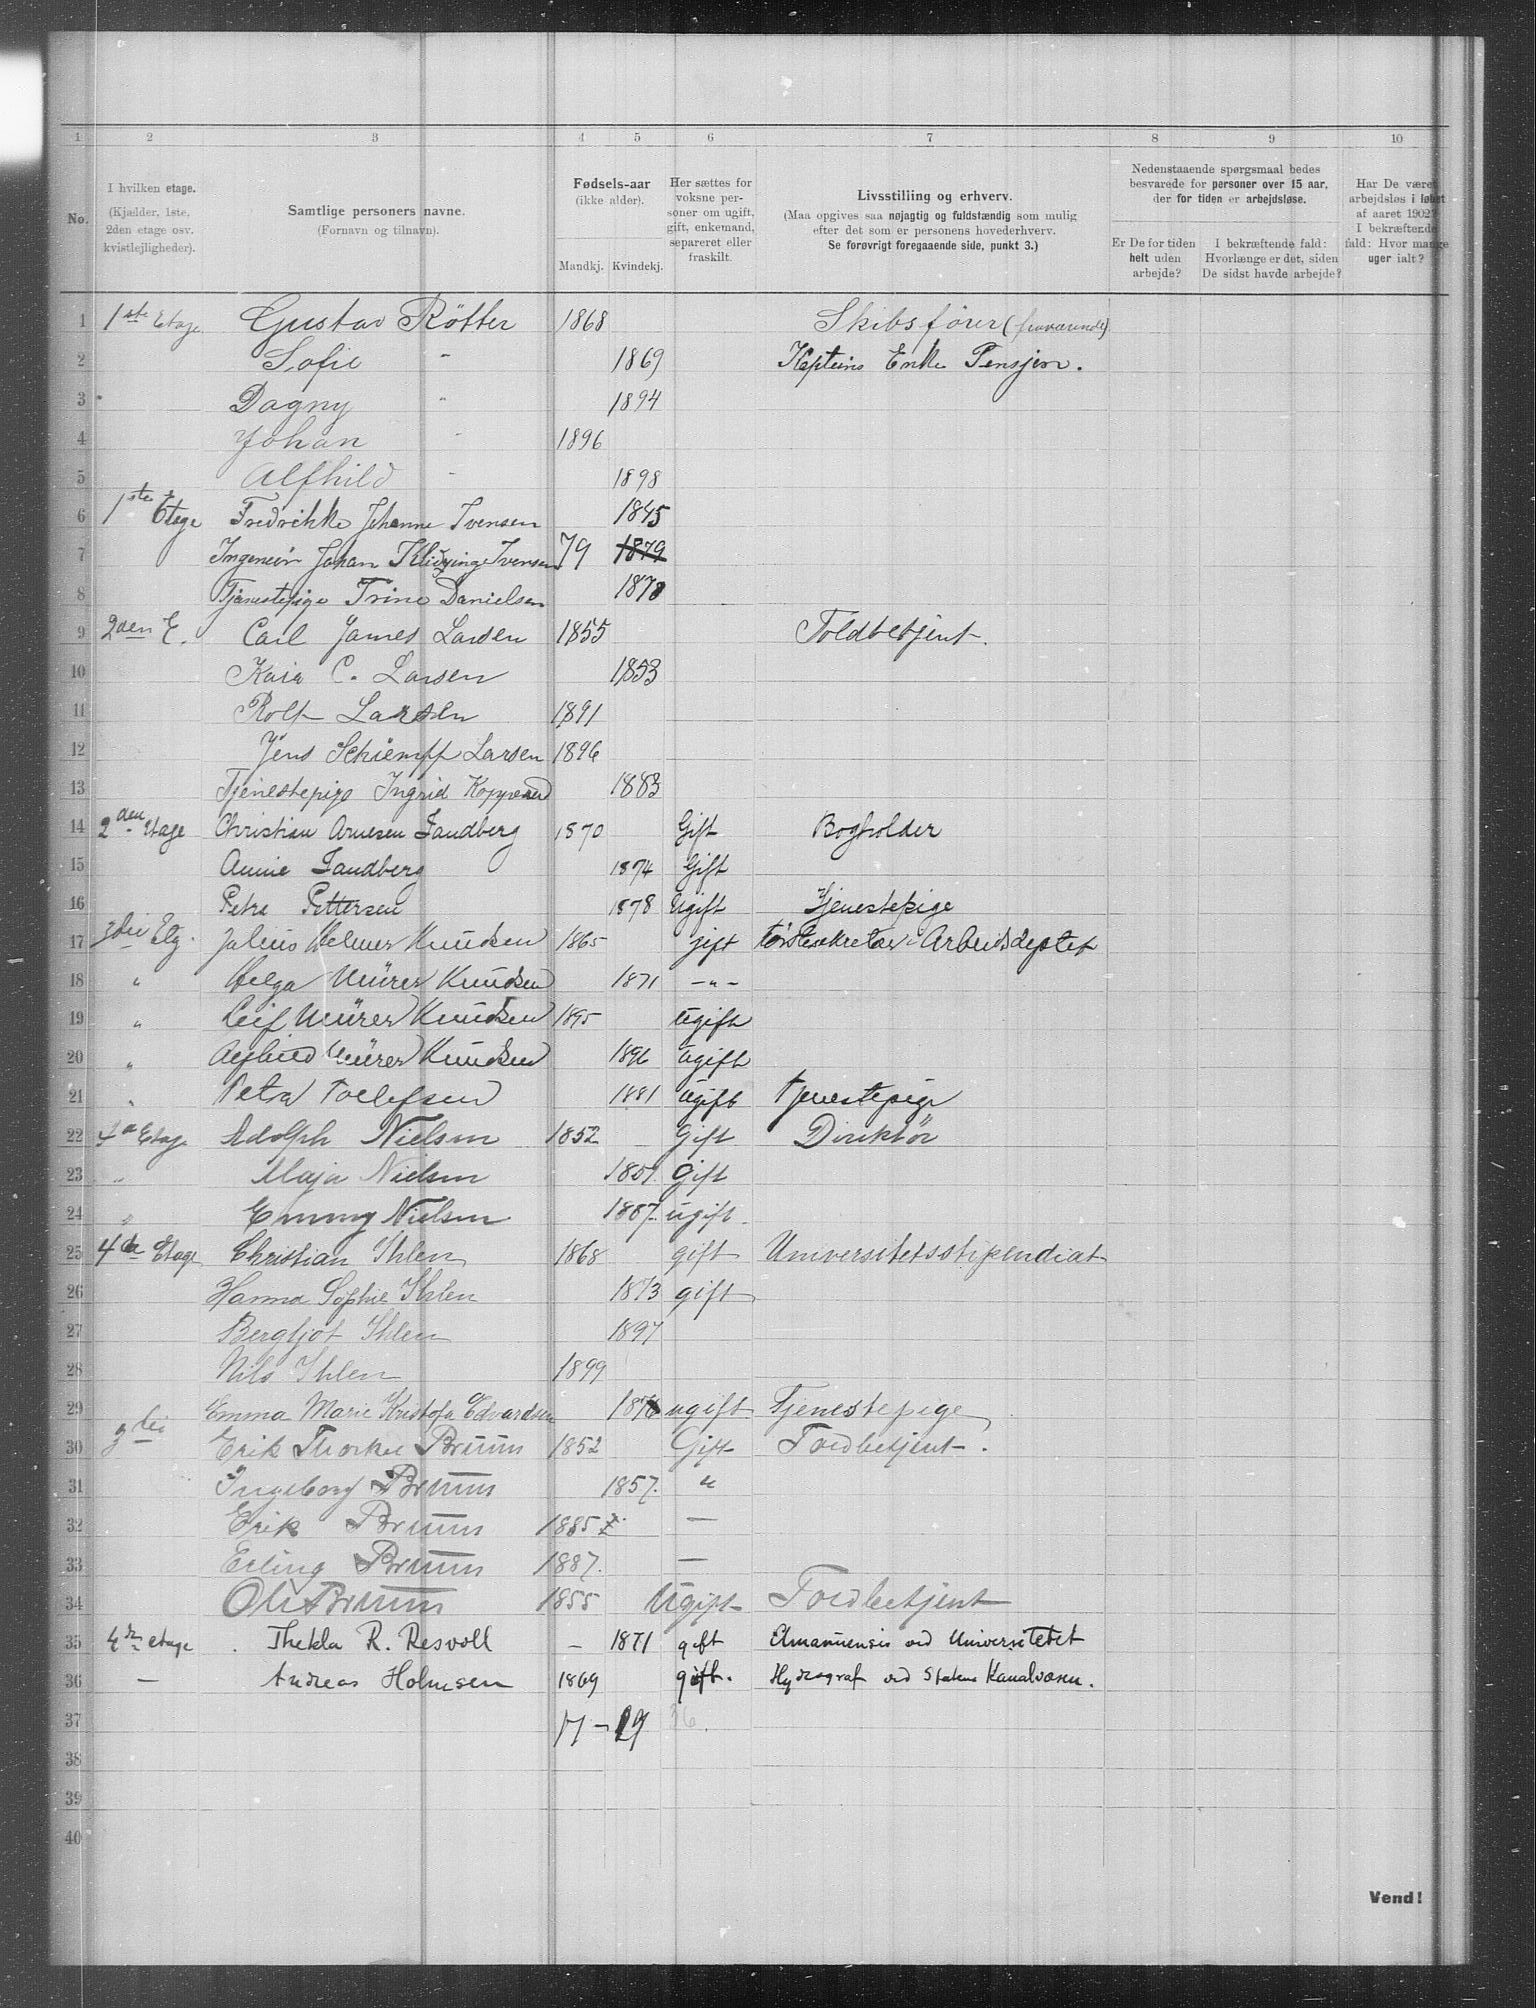 1 2 3 4 5 6 7 8 9 10
No.
I hvilken etage.
(Kjælder, 1ste,
2den etage osv.
kvistlejligheder).
Samtlige personers navne.
(Fornavn og tilnavn).
Fødsels-aar
(ikke alder).
Mandkj. Kvindekj.
Her sættes for
voksne per-
soner om ugift,
gift, enkemand,
separeret eller
fraskilt.
Livsstilling og erhverv.
(Maa opgives saa nøjagtig og fuldstændig som mulig
efter det som er personens hovederhverv.
Se forøvrigt foregaaende side, punkt 3.)
Nedenstaaende spørgsmaal bedes
besvarede for personer over 15 aar,
der for tiden er arbejdsløse.
Er De for tiden
helt uden
arbejde?
I bekræftende fald:
Hvorlænge er det, siden
De sidst havde arbejde?
Har De været
arbejdsløs i løbet
af aaret 1902?
I bekræftende
fald: Hvor mange
uger ialt?
1 1ste Etage Gustav Rötter 1868 Skibsfører (fraværende)
2 Sofie " 1869 Kapteins Enke Pensjon.
3 Dagny " 1894
4 Johan " 1896
5 Alfhild " 1898
6 1ste Etage Fredrikke Johanne Ivensen 1845
7 Ingeniør Johan Ivensen 79 1879
8 Tjenestepige Trine Danielsen 1878
9 2den E. Carl James Larsen 1855 Toldbetjent.
10 Kaia C. Larsen 1853
11 Rolf Larsen 1891
12 Jens Schiempf Larsen 1896
13 Tjenestepige Ingrid 1883
14 2den Etage Christian Arnesen Sandberg 1870 Gift Bogholder
15 Annie Sandberg 1874 Gift
16 Petra Pettersen 1878 Ugift Tjenestepige
17 3die Etg. Julius Helmer Knudsen 1865 gift førstesekretær i Arbeidsdeptet
18 " Helga Mürer Knudsen 1871 -"-
19 " Leif Mürer Knudsen 1895 ugift
20 " Mürer Knudsen 1896 ugift
21 " Petra Tollefsen 1881 ugift Tjenestepige
22 4de Etage Adolph Nielsen 1852 Gift Direktør
23 " Maja Nielsen 1857 Gift
24 " Emmy Nielsen 1887 ugift.
25 4de Etage Christian Ihlen 1868 gift Universitetsstipendiat
26 Hanna Sophie Ihlen 1873 gift
27 Bergljot Ihlen 1897
28 Nils Ihlen 1899
29 Emma Marie Kristofa Edvardsen 1876 ugift Tjenestepige
30 3die Erik Thorkel Bruun 1852 Gift Toldbetjent.
31 Ingeborg Bruun 1857. "
32 Erik Bruun 1885 —
33 Erling Bruun 1887. —
34 Ole Bruun 1855 Ugift Toldbetjent
35 4de etage Thekla R. Resvoll — 1871 gift Amanuensis ved Universitetet
36 — Andreas Holmsen 1869 gift. Hydrograf ved Statens Kanalvæsen.
37 17 – 19 36.
38
39
40
Vend!